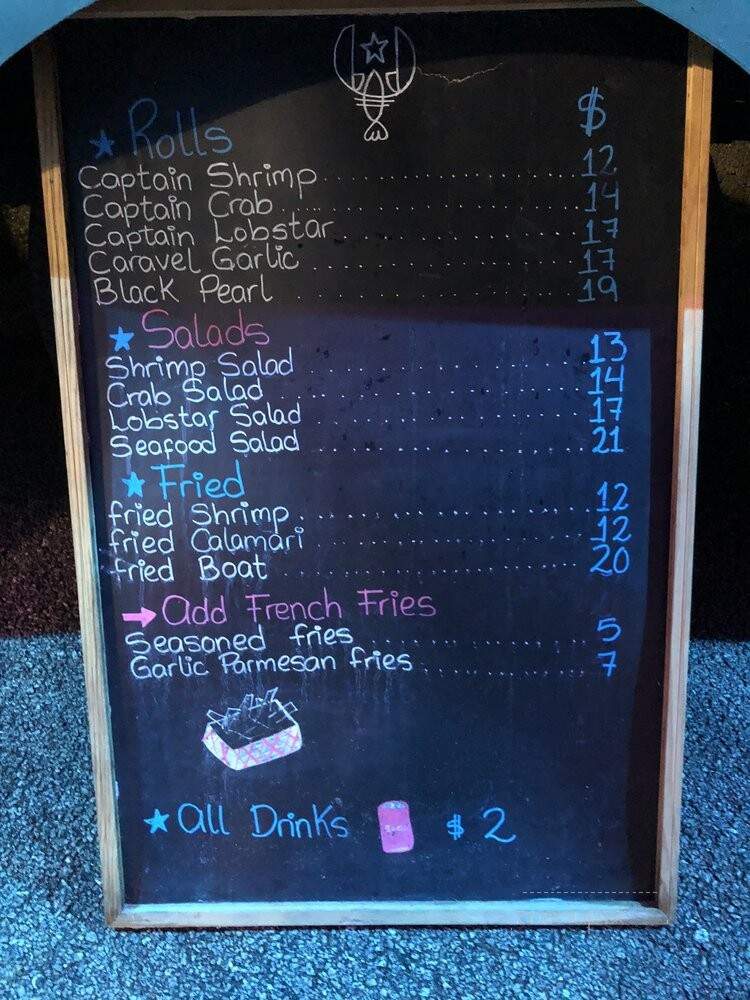 ★ Rolls $
Captain Shrimp 12
Captain Crab 14
Captain Lobstar 17
Caravel Garlic 17
Black Pearl 19
★ Salads
Shrimp Salad 13
Crab Salad 14
Lobstar Salad 17
Seafood Salad 21
★ Fried
fried Shrimp 12
fried Calamari 12
fried Boat 20
→ Add French Fries
Seasoned fries 5
Garlic Parmesan fries 7
★ All Drinks $ 2